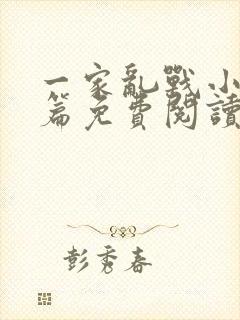 一家亂戰小
篇免費閱讀
彭秀春